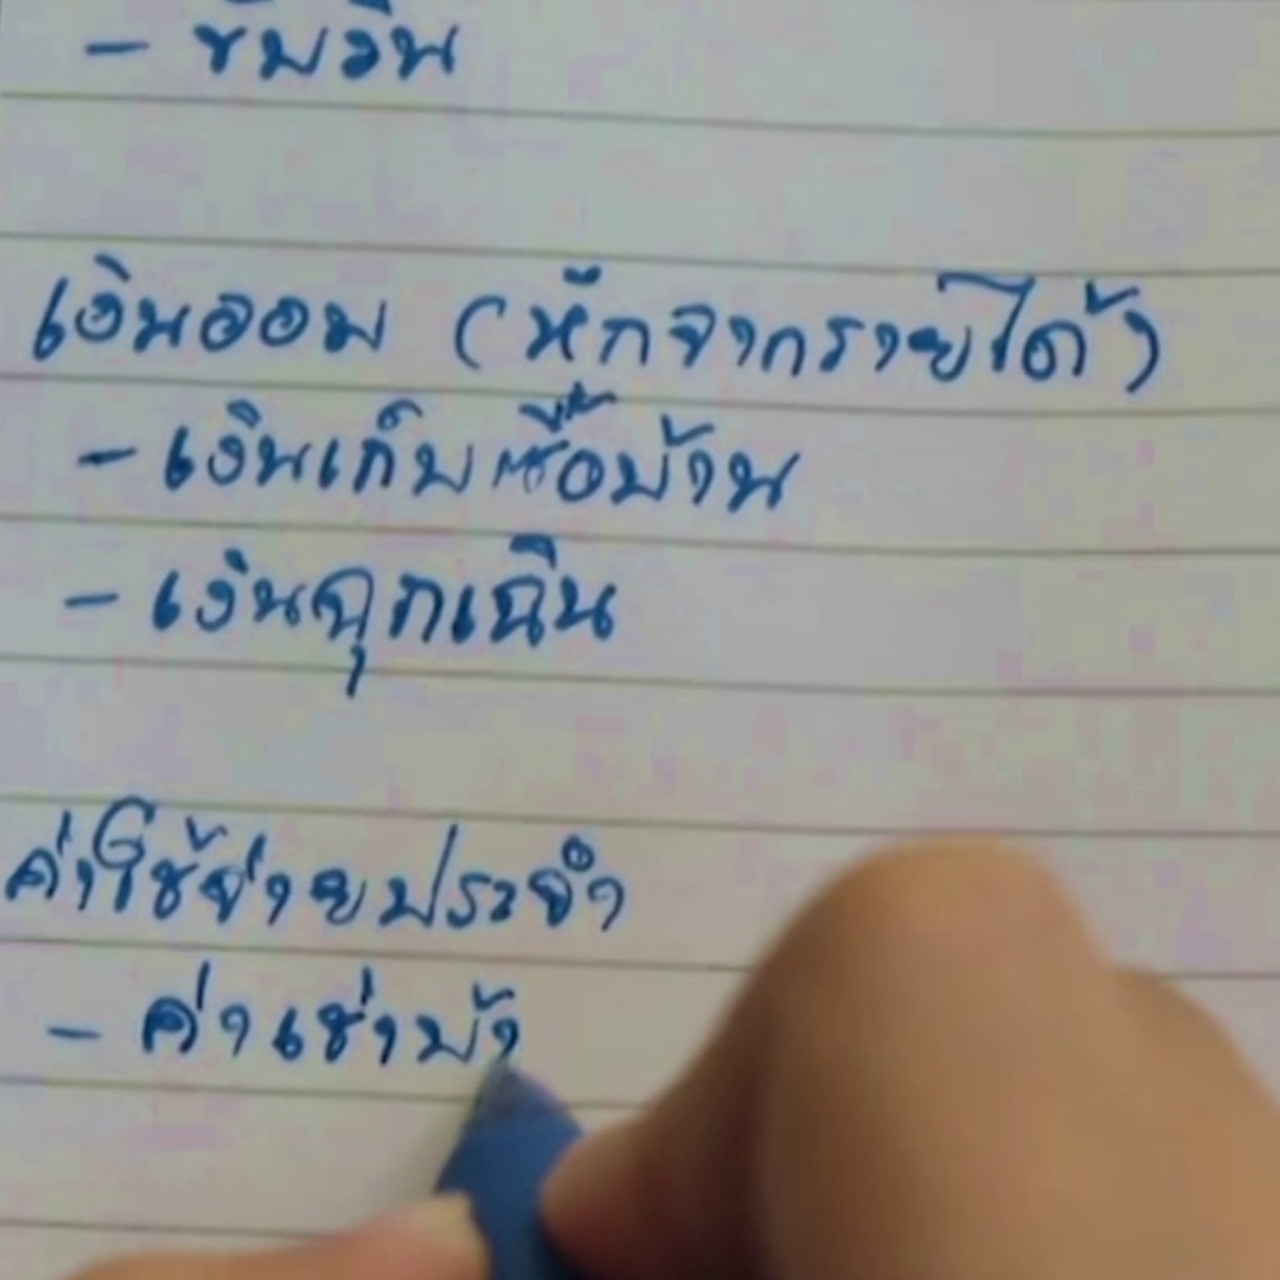 เงินออม (หักจากรายได้)
- เงินเก็บซื้อบ้าน
- เงินฉุกเฉิน
ค่าใช้จ่ายประจำ
- ค่าเช่าบ้า